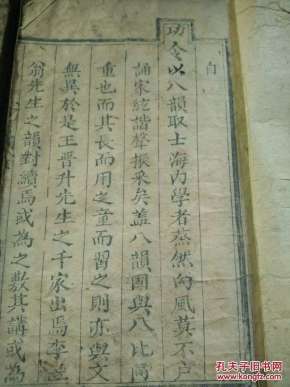 自
功令以八韻取士海內學者蒸然向風莫不戶
誦家絃諧聲振采矣蓋八韻固與八比高
重也而其長而用之童而習之則亦與文
無異於是王晉升先生之千家出焉李
翁先生之韻對續焉或為之教其講或為
孔夫子旧书网